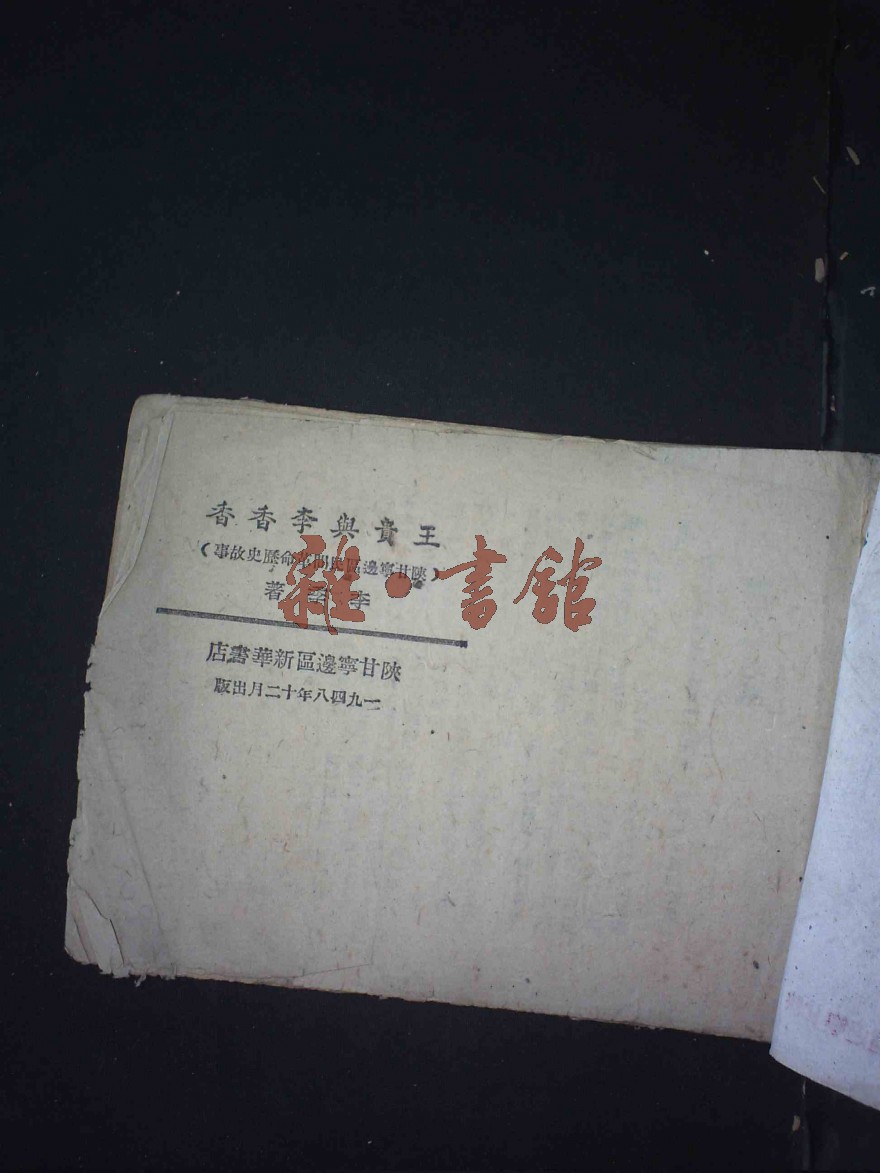 王貴與李香香
（陝甘寧邊區民間革命歷史故事）
李季著
雜·書館
陝甘寧邊區新華書店
一九四八年十二月出版